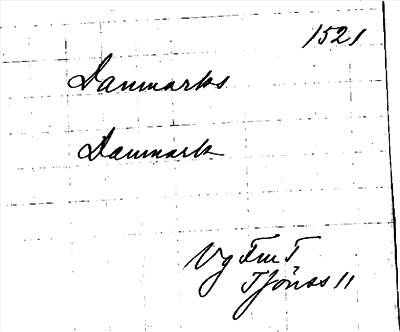 1521
Danmarks
Danmark
Vg Fm T
Tjönss 11